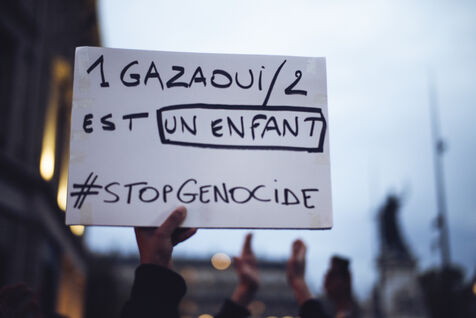 1 GAZAOUI/2
EST UN ENFANT
#STOPGENOCIDE